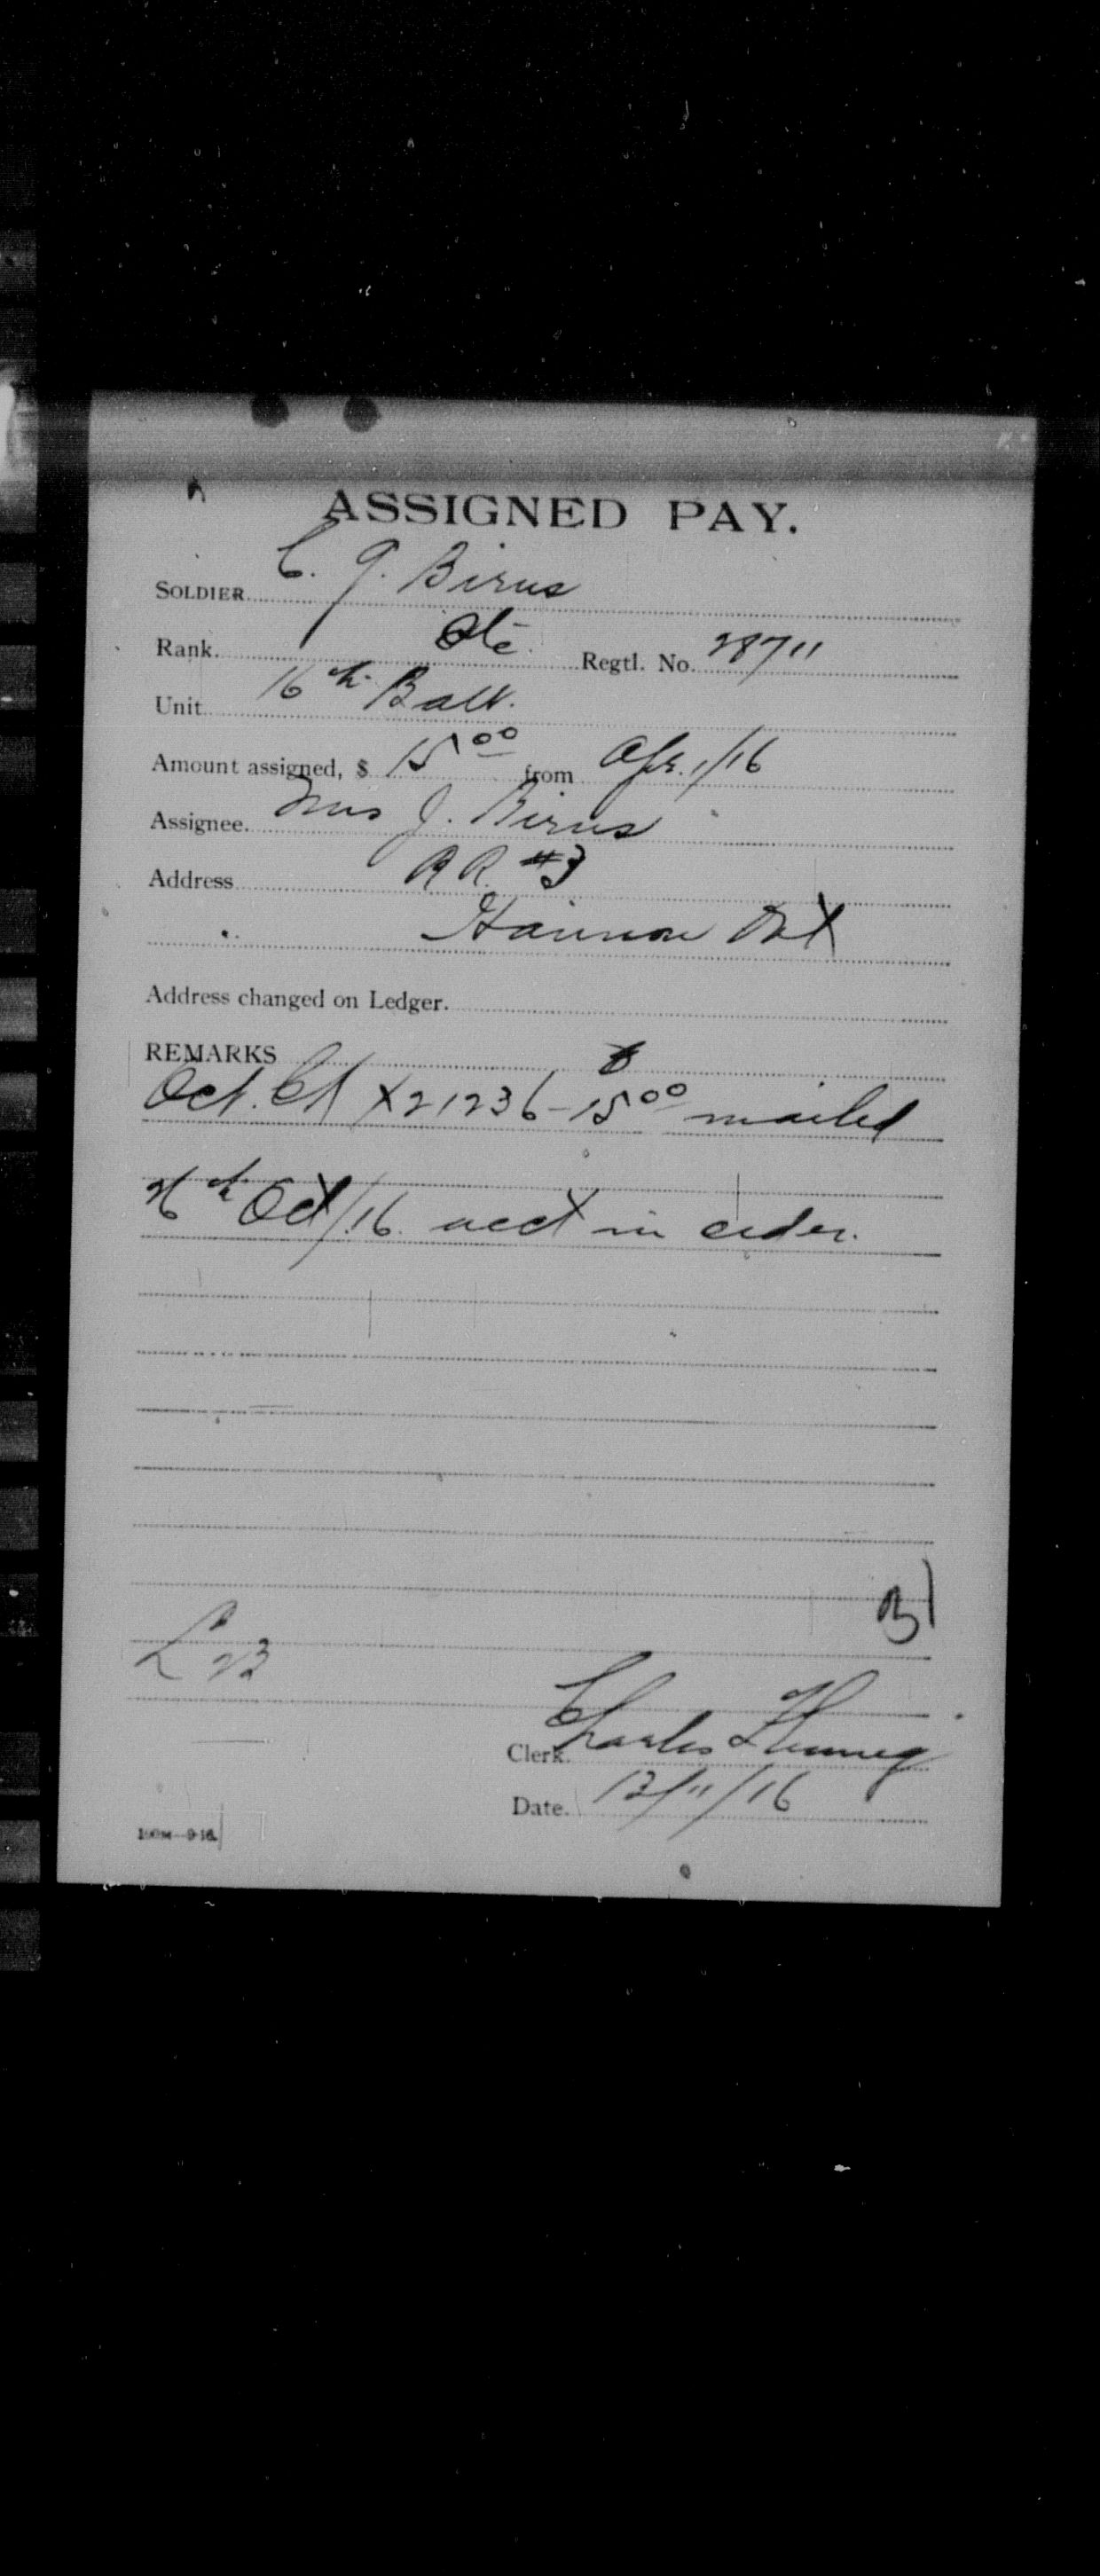 ASSIGNED PAY.
SOLDIER C. J. Birus
Rank Pte Regtl. No. 28711
Unit 16th Batt.
Amount assigned, $ 15 00 from Apr. 1/16
Assignee. Mrs J. Birus
Address R R. #3
Hannon Ont
Address changed on Ledger.
REMARKS
Oct. Ch X21236 - 15 00 mailed
26th Oct/16 acct in order.
L 23
Clerk. Charles
Date. 13/11/16